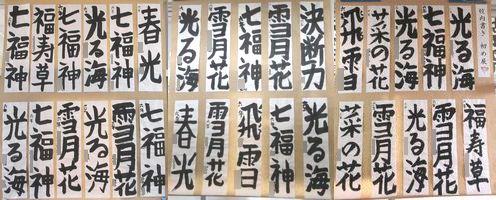 校内書き初め展
光る海
七福神
光る海
菜の花
飛雪
決断力
雪月花
七福神
雪月花
光る海
春光
七福神
光る海
七福神
福寿草
七福神
福寿草
雪月花
光る海
雪月花
菜の花
光る海
七福神
飛雪
雪月花
春光
七福神
雪月花
光る海
雪月花
七福神
光る海